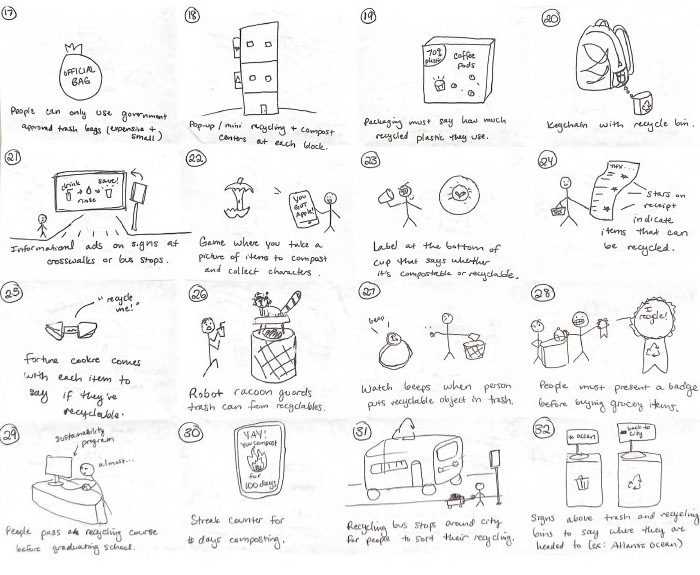 17
OFFICIAL
BAG
People can only use government
approved trash bags (expensive +
small)
18
Pop-up / mini recycling + compost
centers at each block.
19
70%
plastic
coffee
pods
Packaging must say how much
recycled plastic they use.
20
Keychain with recycle bin.
21
drink
save!
rinse
Informational ads on signs at
crosswalks or bus stops.
22
You
GOT
Apple!
Game where you take a
picture of items to compost
and collect characters.
23
Label at the bottom of
cup that says whether
it's compostable or recyclable.
24
stars on
receipt
indicate
items that can
be recycled.
25
"recycle
me!"
Fortune cookie comes
with each item to
say if they're
recyclable.
26
Robot racoon guards
trash can from recyclables.
27
beep
Watch beeps when person
puts recyclable object in trash.
28
I
recycle!
People must present a badge
before buying grocery items.
29
sustainability
program
almost...
People pass recycling course
before graduating school.
30
YAY!
You compost
for
100 days
Streak counter for
# days composting.
31
Recycling bus stops around city
for people to sort their recycling.
32
to OCEAN
back to
city
Signs above trash and recycling
bins to say where they are
headed to (ex: Atlantic Ocean)